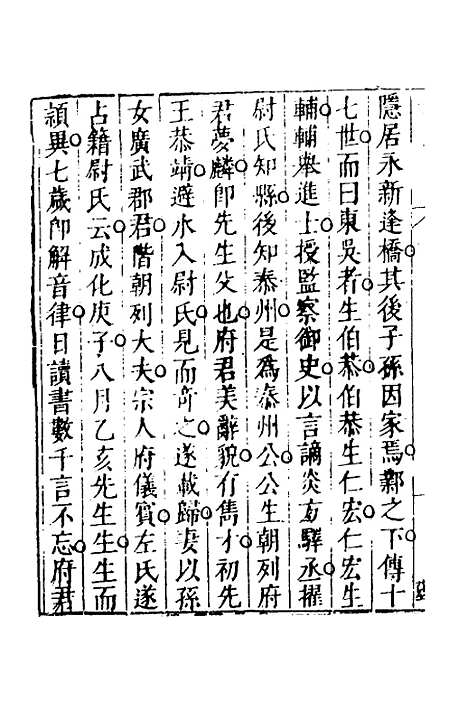 隱居永新逢橋其後子孫因家焉鄴之下傳十
七世而曰東吳者生伯恭伯恭生仁宏仁宏生
輔輔舉進士授監察御史以言謫炎方驛丞擢
尉氏知縣後知泰州是爲泰州公公生朝列府
君夢麟卽先生父也府君美辭貌有雋才初先
王恭靖避水入尉氏見而奇之遂載歸妻以孫
女廣武郡君階朝列大夫宗人府儀賓左氏遂
占籍尉氏云成化庚子八月乙亥先生生生而
穎異七歲卽解音律日讀書數千言不忘府君